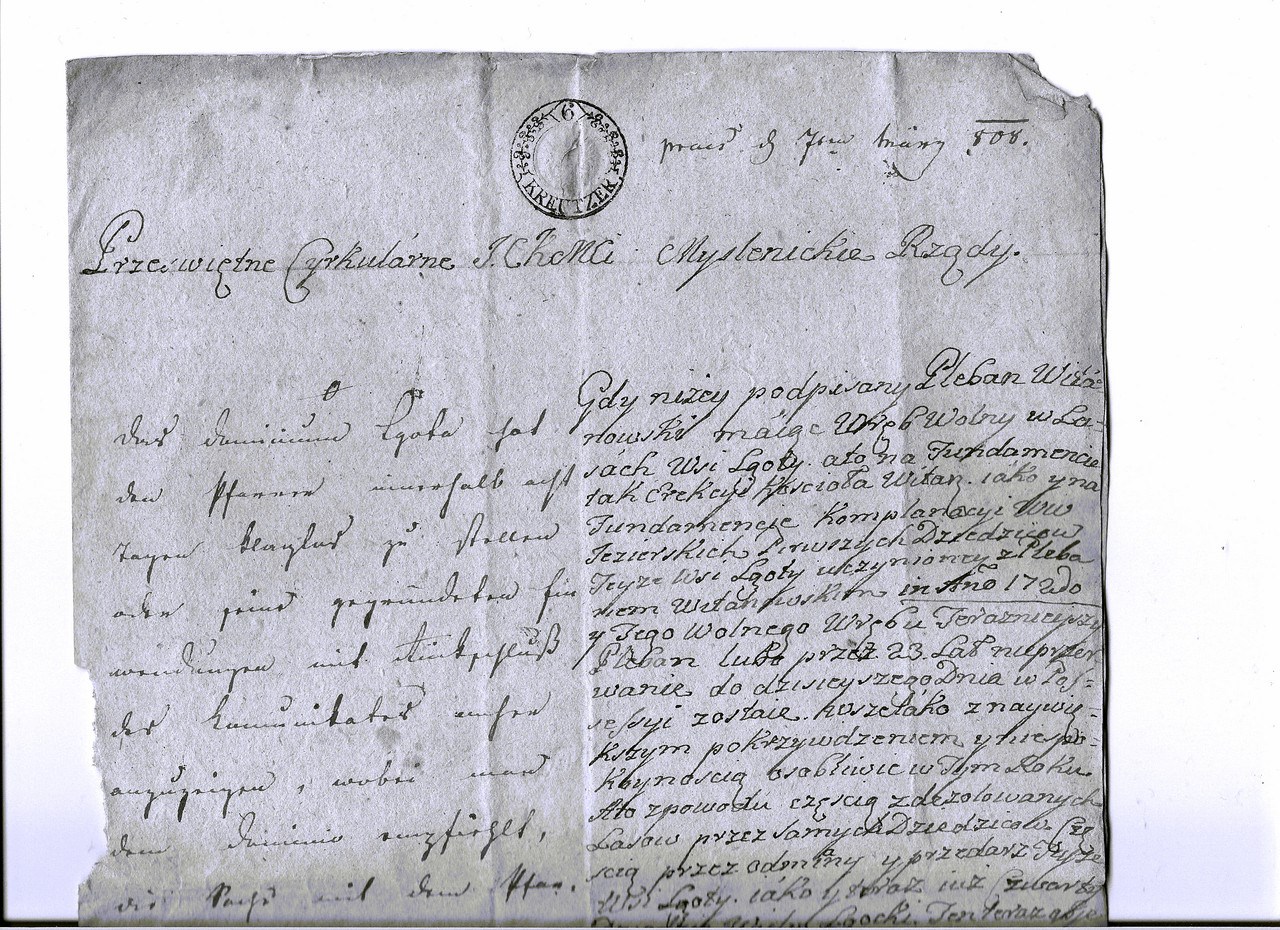 6
KREUTZER
praes d 7ten März 808.
Przeswiętne Cyrkulárne J. C K Mci Myslenickie Rządy.
Das Dominium Lgota hat
den Pfarrer innerhalb acht
Tagen klaglos zu stellen
oder seine gegründeten Ein
wendungen mit Rückschluß
des Kommunikates anher
anzuzeigen, wobei man
dem Dominio empfiehlt,
die Sache mit dem Pfar.
Gdy niżey podpisany Pleban Witá-
nowski máiąc Wręb Wolny w La-
sách Wsi Lgoty. ato na Fundamencie
tak Erekcyi Kościoła Witan. iáko y na
Fundamencie Komplanacyi WW
Jezierskich Pirwszych Dziedzicow
Teyże Wsi Lgoty uczynioney z Pleba
nem Witanowskim in Anõ 1720do
y Tego Wolnego Wrębu Terazniejszy
Pleban lubo przez 23. Lat nieprzer
wanie do dzisieyszego Dnia w Pos-
sessyi zostaie.
z naywię-
kszym pokrzywdzeniem y niespo-
koynoscią osobliwie w Tym Roku.
Ato zpowodu częścią zdezolowanych
Lasow przez samych Dziedzicow. Czę
scią przez odmiány y przedarz Teyże
Wsi Lgoty. iáko y teraz iuż Czwarty
Lgocki. Ten teraz